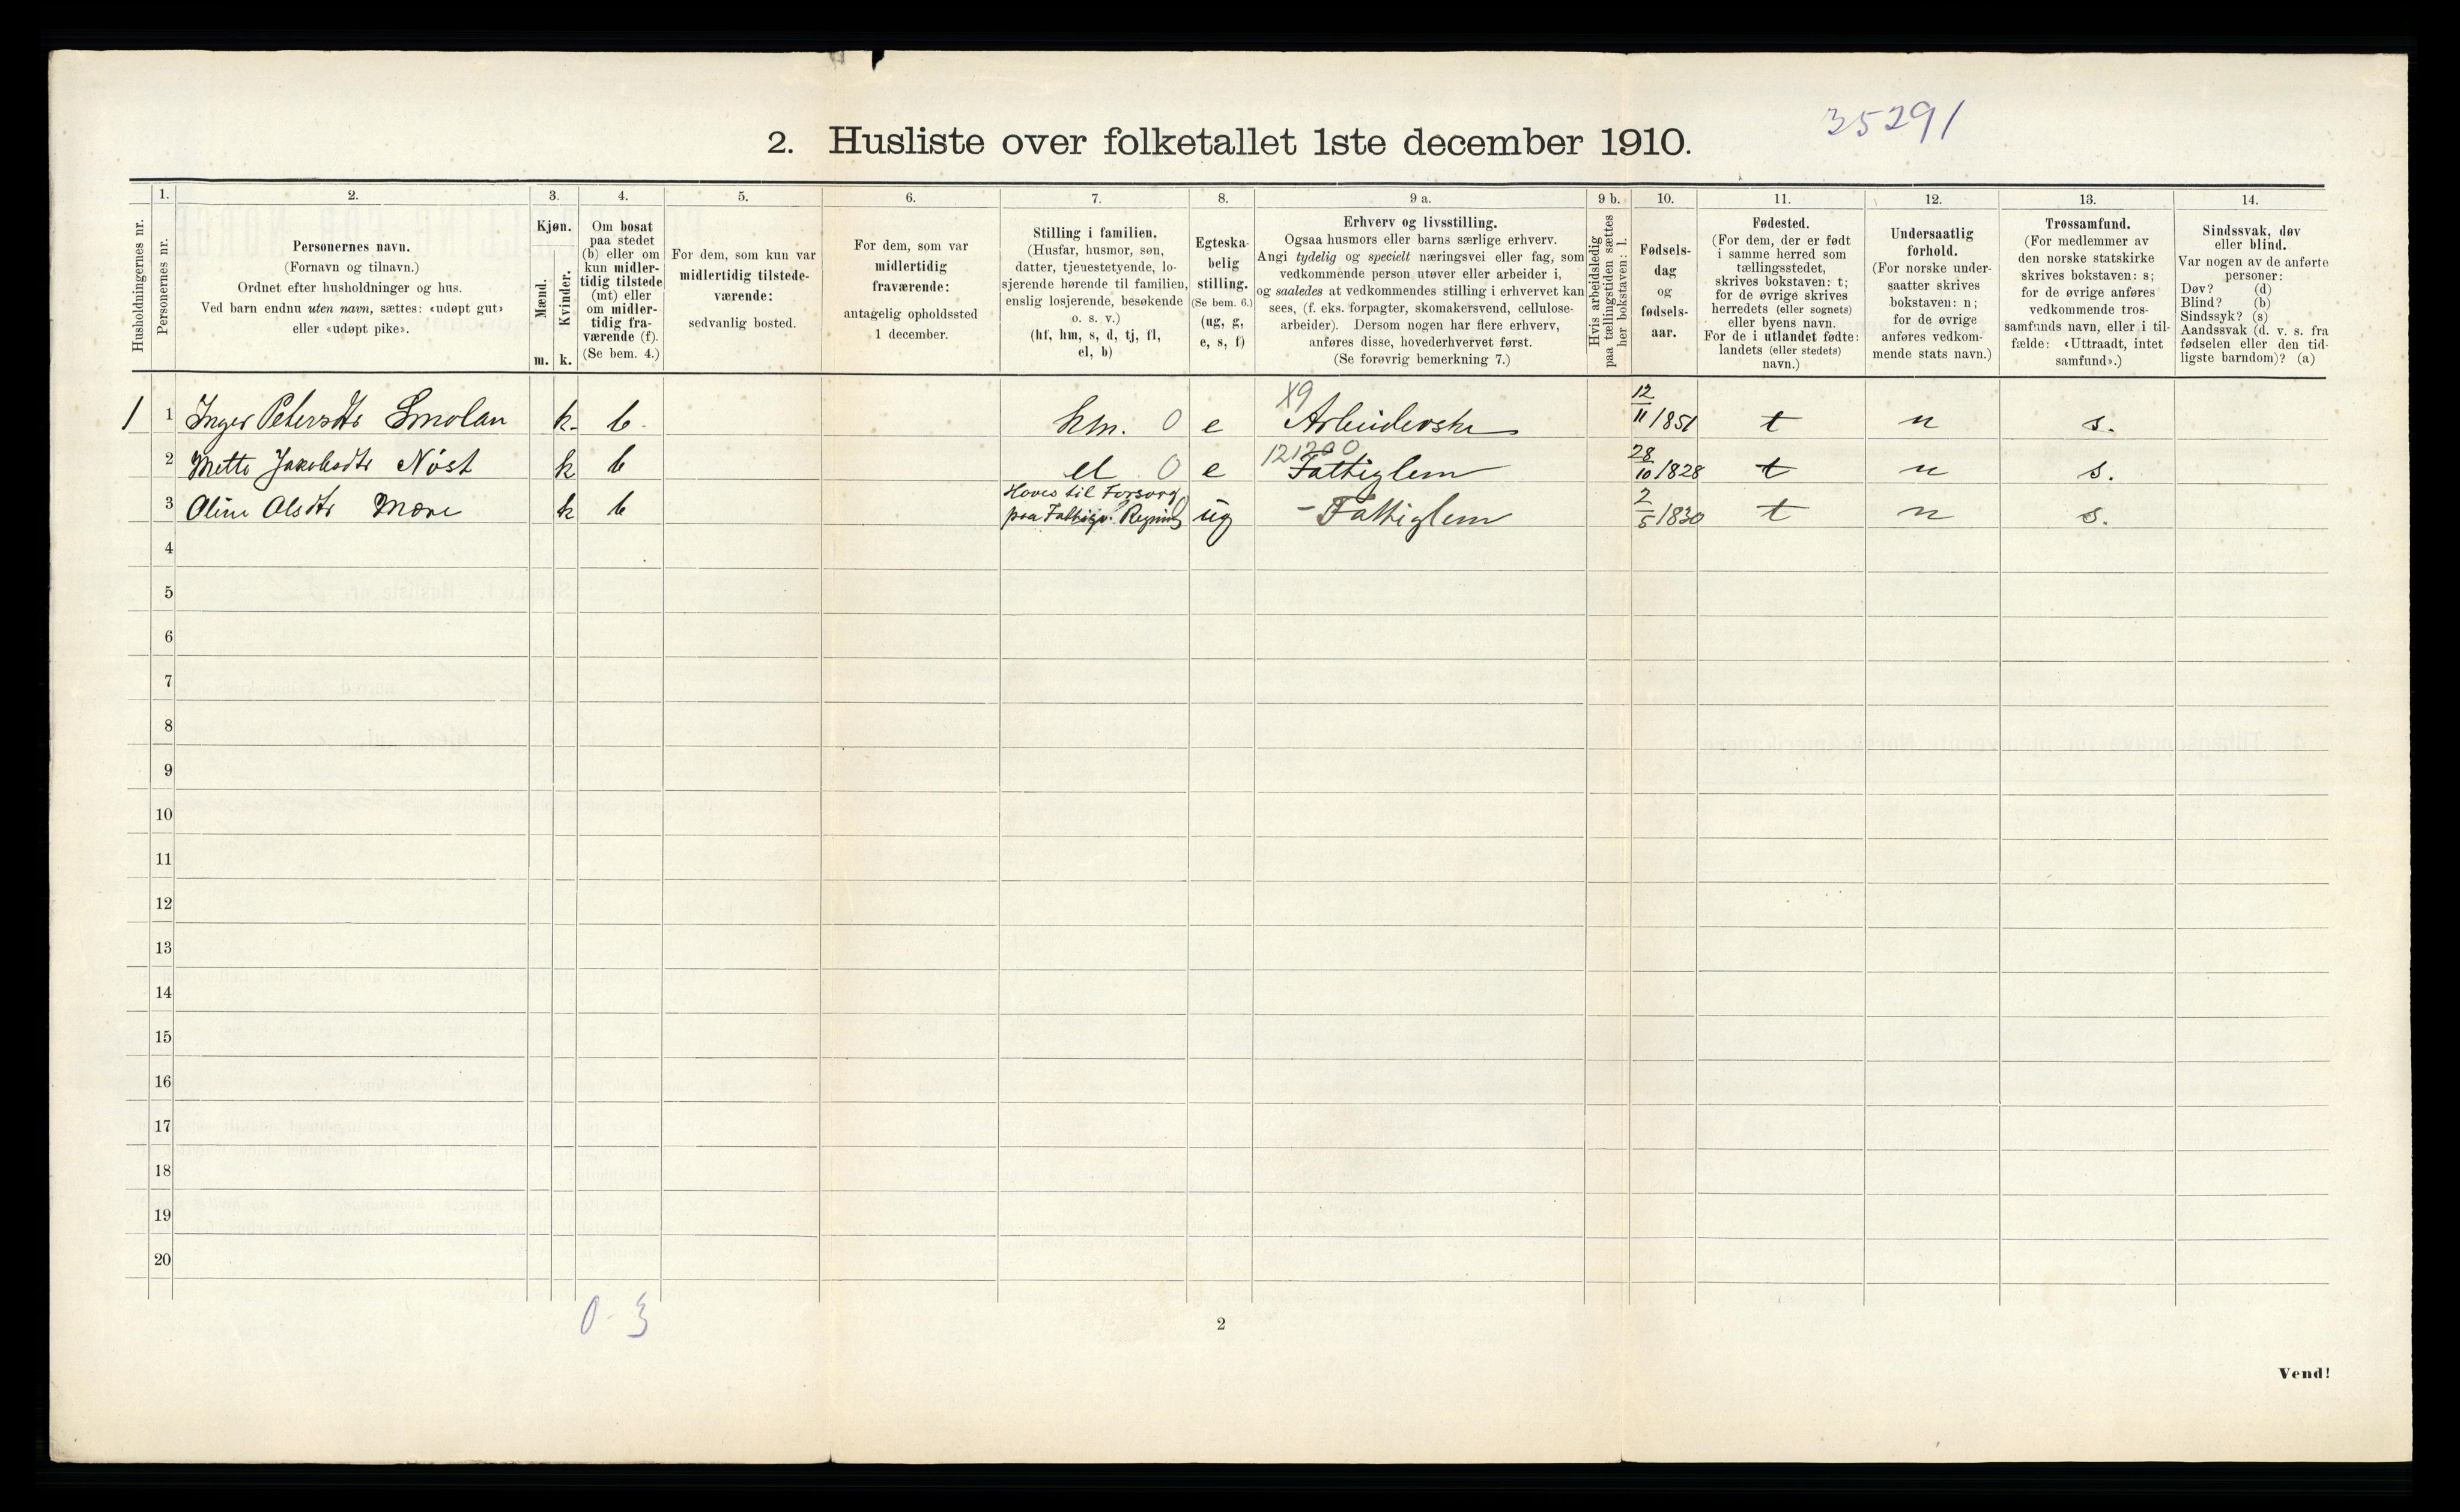 35291
2. Husliste over folketallet 1ste december 1910.
Husholdningernes nr.
1.
Personernes nr.
2.
Personernes navn.
(Fornavn og tilnavn.)
Ordnet efter husholdninger og hus.
Ved barn endnu uten navn, sættes: «udøpt gut»
eller «udøpt pike».
3.
Kjøn.
Mænd.
m.
Kvinder.
k.
4.
Om bosat
paa stedet
(b) eller om
kun midler-
tidig tilstede
(mt) eller
om midler-
tidig fra-
værende (f).
(Se bem. 4.)
5.
For dem, som kun var
midlertidig tilstede-
værende:
sedvanlig bosted.
6.
For dem, som var
midlertidig
fraværende:
antagelig opholdssted
1 december.
7.
Stilling i familien.
(Husfar, husmor, søn,
datter, tjenestetyende, lo-
sjerende hørende til familien,
enslig losjerende, besøkende
o. s. v.)
(hf, hm, s, d, tj, fl,
el, b)
8.
Egteska-
belig
stilling.
(Se bem. 6.)
(ug, g,
e, s, f)
9 a.
Erhverv og livsstilling.
Ogsaa husmors eller barns særlige erhverv.
Angi tydelig og specielt næringsvei eller fag, som
vedkommende person utøver eller arbeider i,
og saaledes at vedkommendes stilling i erhvervet kan
sees, (f. eks. forpagter, skomakersvend, cellulose-
arbeider). Dersom nogen har flere erhverv,
anføres disse, hovederhvervet først.
(Se forøvrig bemerkning 7.)
9 b.
Hvis arbeidsledig
paa tællingstiden sættes
her bokstaven: l.
10.
Fødsels-
dag
og
fødsels-
aar.
11.
Fødested.
(For dem, der er født
i samme herred som
tællingsstedet,
skrives bokstaven: t;
for de øvrige skrives
herredets (eller sognets)
eller byens navn.
For de i utlandet fødte:
landets (eller stedets)
navn.)
12.
Undersaatlig
forhold.
(For norske under-
saatter skrives
bokstaven: n;
for de øvrige
anføres vedkom-
mende stats navn.)
13.
Trossamfund.
(For medlemmer av
den norske statskirke
skrives bokstaven: s;
for de øvrige anføres
vedkommende tros-
samfunds navn, eller i til-
fælde: «Uttraadt, intet
samfund».)
14.
Sindssvak, døv
eller blind.
Var nogen av de anførte
personer:
Døv? (d)
Blind? (b)
Sindssyk? (s)
Aandssvak (d. v. s. fra
fødselen eller den tid-
ligste barndom)? (a)
1 1 Inger Petersdtr Smolan k. b. hm. 0 e X9 Arbeiderske 12/11 1851 t n s.
2 Mette Jakobsdtr Nøst k b el 0 e 121200 Fattiglem 28/10 1828 t n s.
3 Oline Olsdtr Mære k b Haves til Forsorg
paa Fattigv. Regning ug - Fattiglem 2/5 1830 t n s.
4
5
6
7
8
9
10
11
12
13
14
15
16
17
18
19
20
0 - 3
2
Vend!